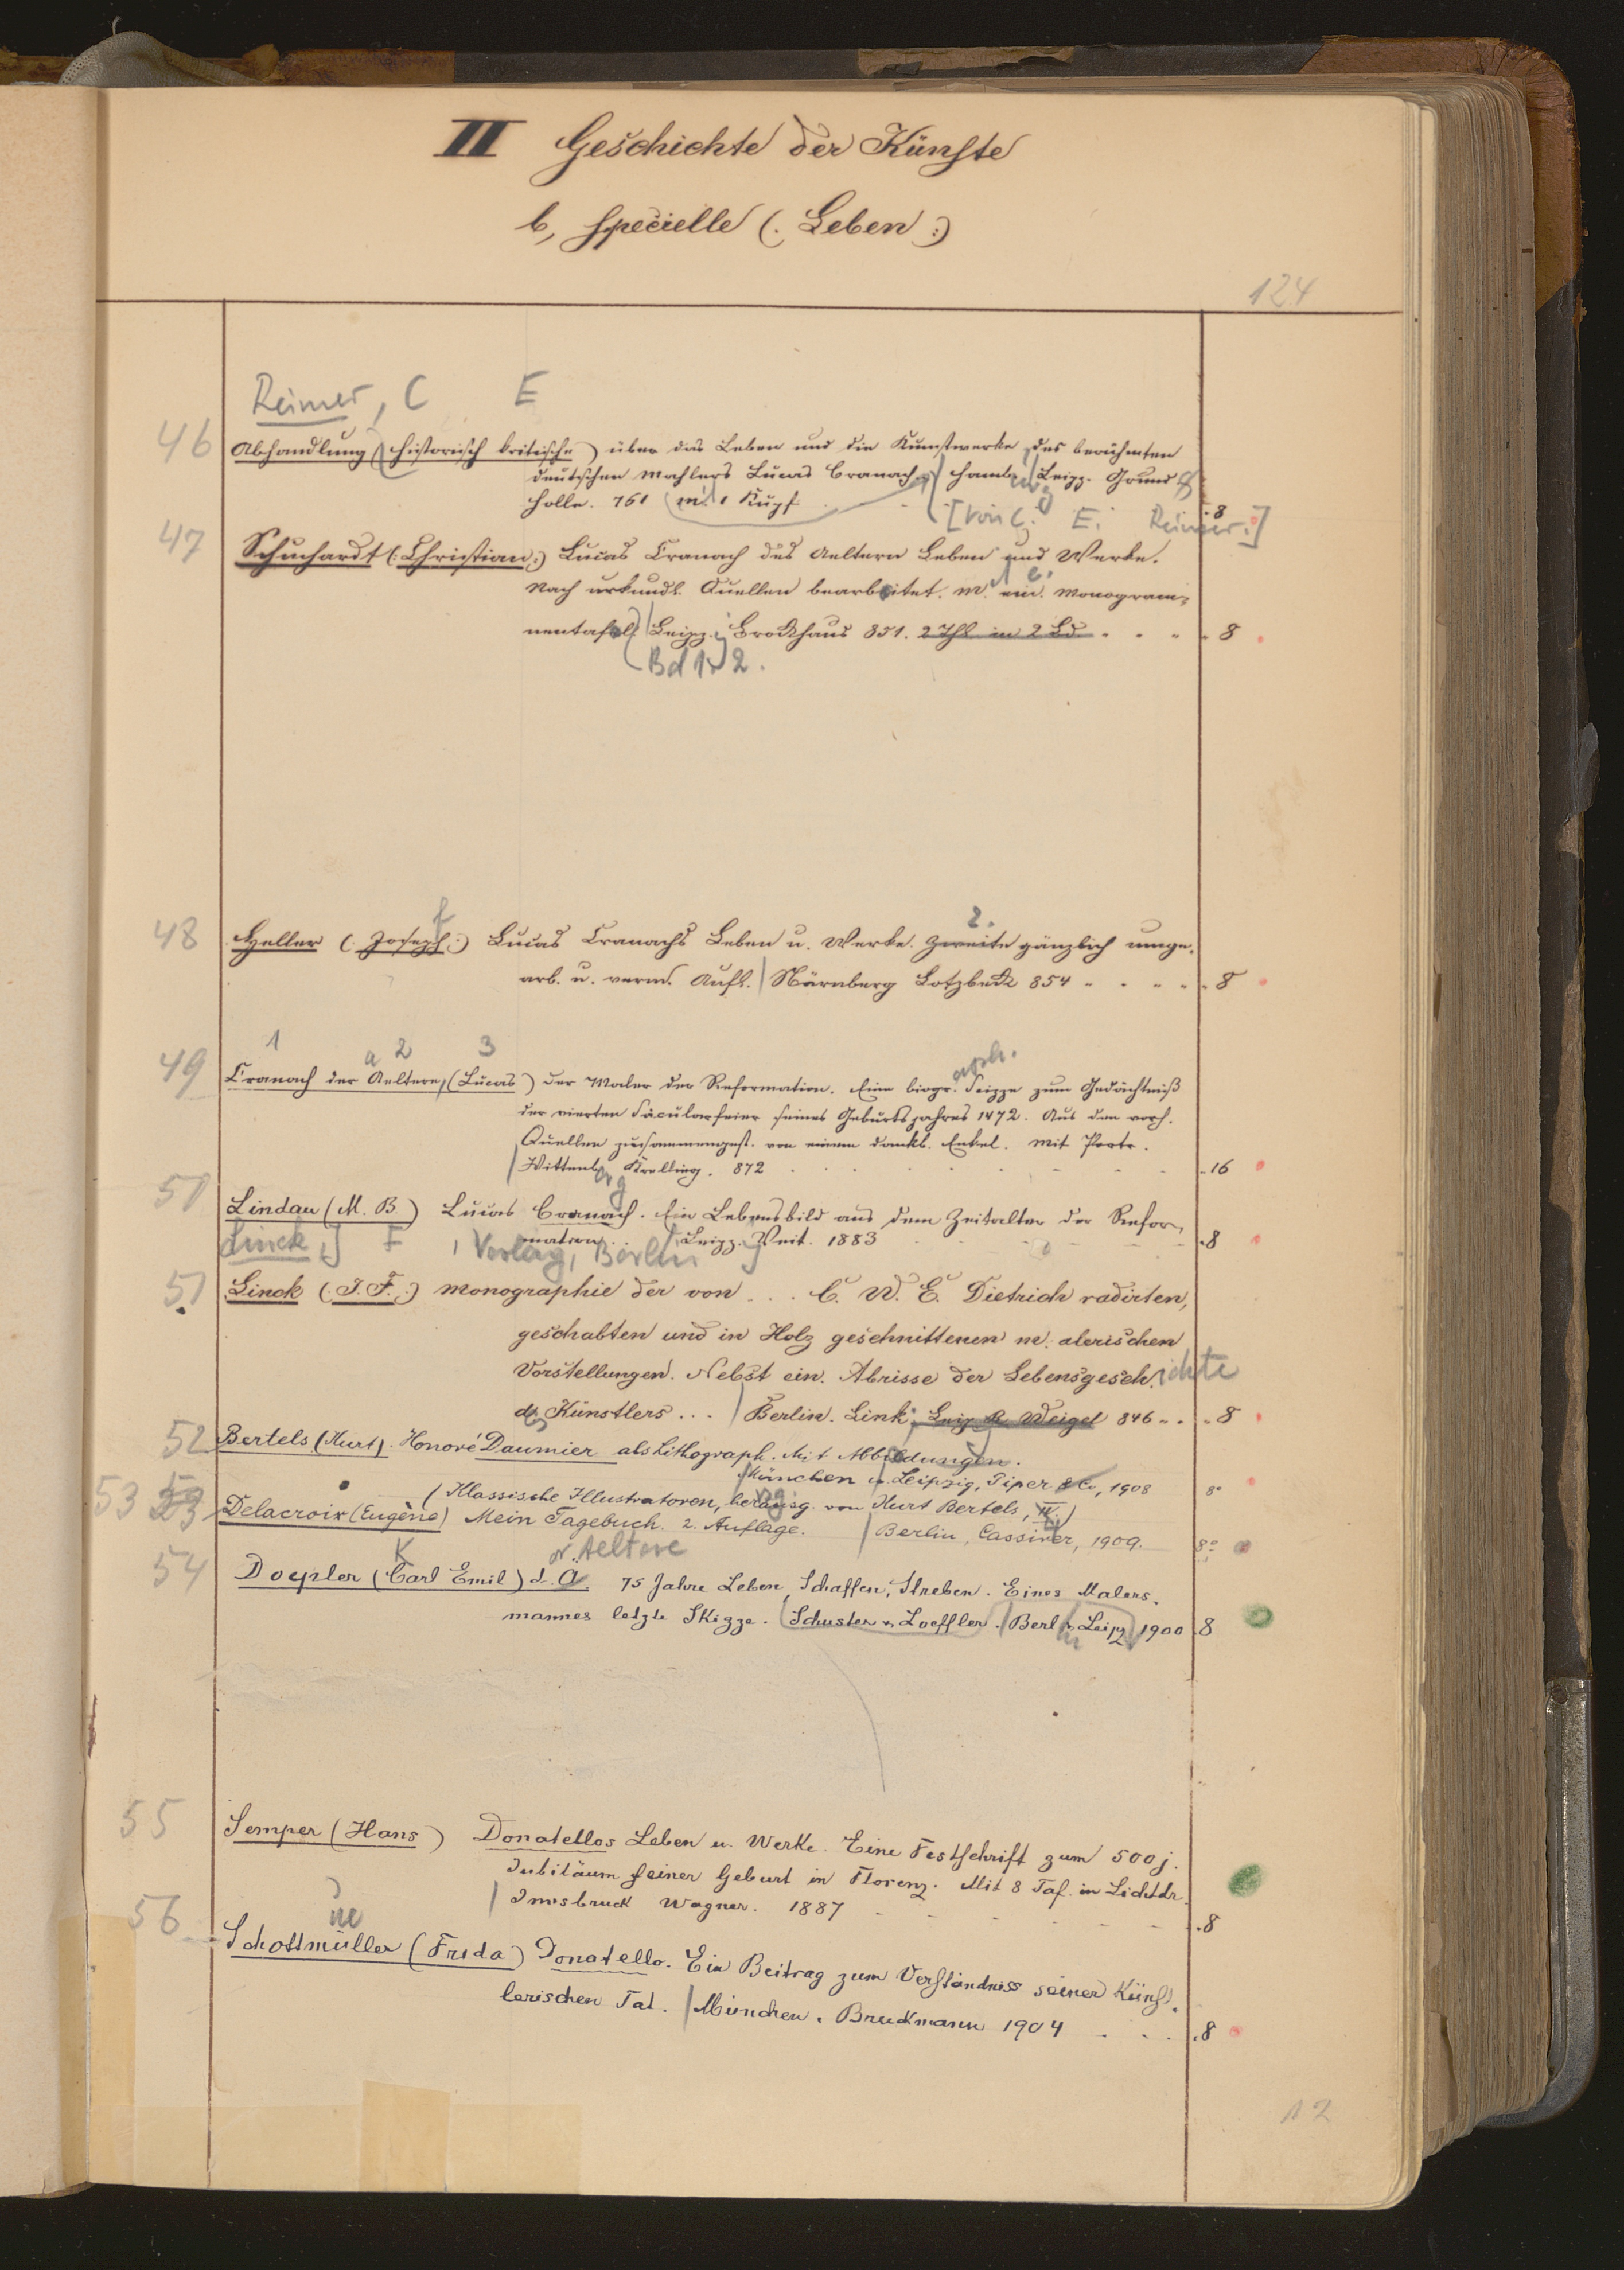 II Geschichte der Künste
b, specielle (: Leben :)
124
Reimer, C E
46 Abhandlung (historisch kritische) über das Leben und die Kunstwerke des berühmten
deutschen Mahlers Lucas Cranach. Hamb. Leipz. Grund
Holle. 761 m. 1 Kupf. 8
[von C. E. Reimer.]
47 Schuchardt (: Christian :) Lucas Cranach des Aeltern Leben und Werke.
Nach urkundl. Quellen bearbeitet. m. ein. Monogram-
mentafel. Leipz. Brockhaus 851. 2 Thl in 2 Bd 8
Bd 1. 2.
48 Heller (: Joseph :) Lucas Cranachs Leben u. Werke. Zweite gänzlich umge-
arb. u. verm. Aufl. Nürnberg Lotzbeck 854 8
1 a 2 3
49 Cranach der Aeltere, (Lucas) der Maler der Reformation. Eine biogr. Skizze zum Gedächtniß
der vierten Säcularfeier seines Geburtsjahres 1472. Aus den vorh.
Quellen zusammengest. von einem dankb. Enkel. Mit Portr.
Wittenb. Krelling. 872 16
50 Lindau (M. B.) Lucas Cranach. Ein Lebensbild aus dem Zeitalter der Refor-
mation. Leipz. Veit. 1883 8
Linck, J F, Verlag, Berlin
51 Linck (: J. F. :) Monographie der von . . . C. W. E. Dietrich radirten,
geschabten und in Holz geschnittenen m. alerischen
Vorstellungen. Nebst ein. Abrisse der Lebensgesch.ichte
des Künstlers . . . Berlin. Link. Leip R Weigel 846 8
52 Bertels (Kurt). Honoré Daumier als Lithograph. Mit Abbildungen.
München u. Leipzig, Piper & Co, 1908 8°
(Klassische Illustratoren, herausg. von Kurt Bertels, IV.)
53 Delacroix (Eugène) Mein Tagebuch. 2. Auflage. Berlin, Cassirer, 1909. 8°
K Aeltere
54 Doepler (Carl Emil) d. Ä. 75 Jahre Leben, Schaffen, Streben. Eines Malers-
mannes letzte Skizze. Schuster u. Loeffler. Berl. u. Leipz. 1900 8
55 Semper (Hans) Donatellos Leben u. Werke. Eine Festschrift zum 500 j.
Jubiläum seiner Geburt in Florenz. Mit 8 Taf. in Lichtdr.
Innsbruck Wagner. 1887 8
ue
56 Schottmüller (Frida) Donatello. Ein Beitrag zum Verständniss seiner Künst-
lerischen Tat. München. Bruckmann 1904 8
12